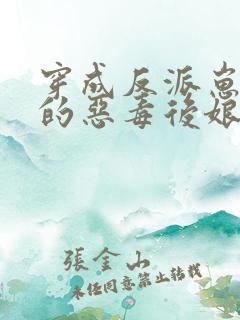 穿成反派崽
的惡毒後娘
張金山
未经同意禁止转载